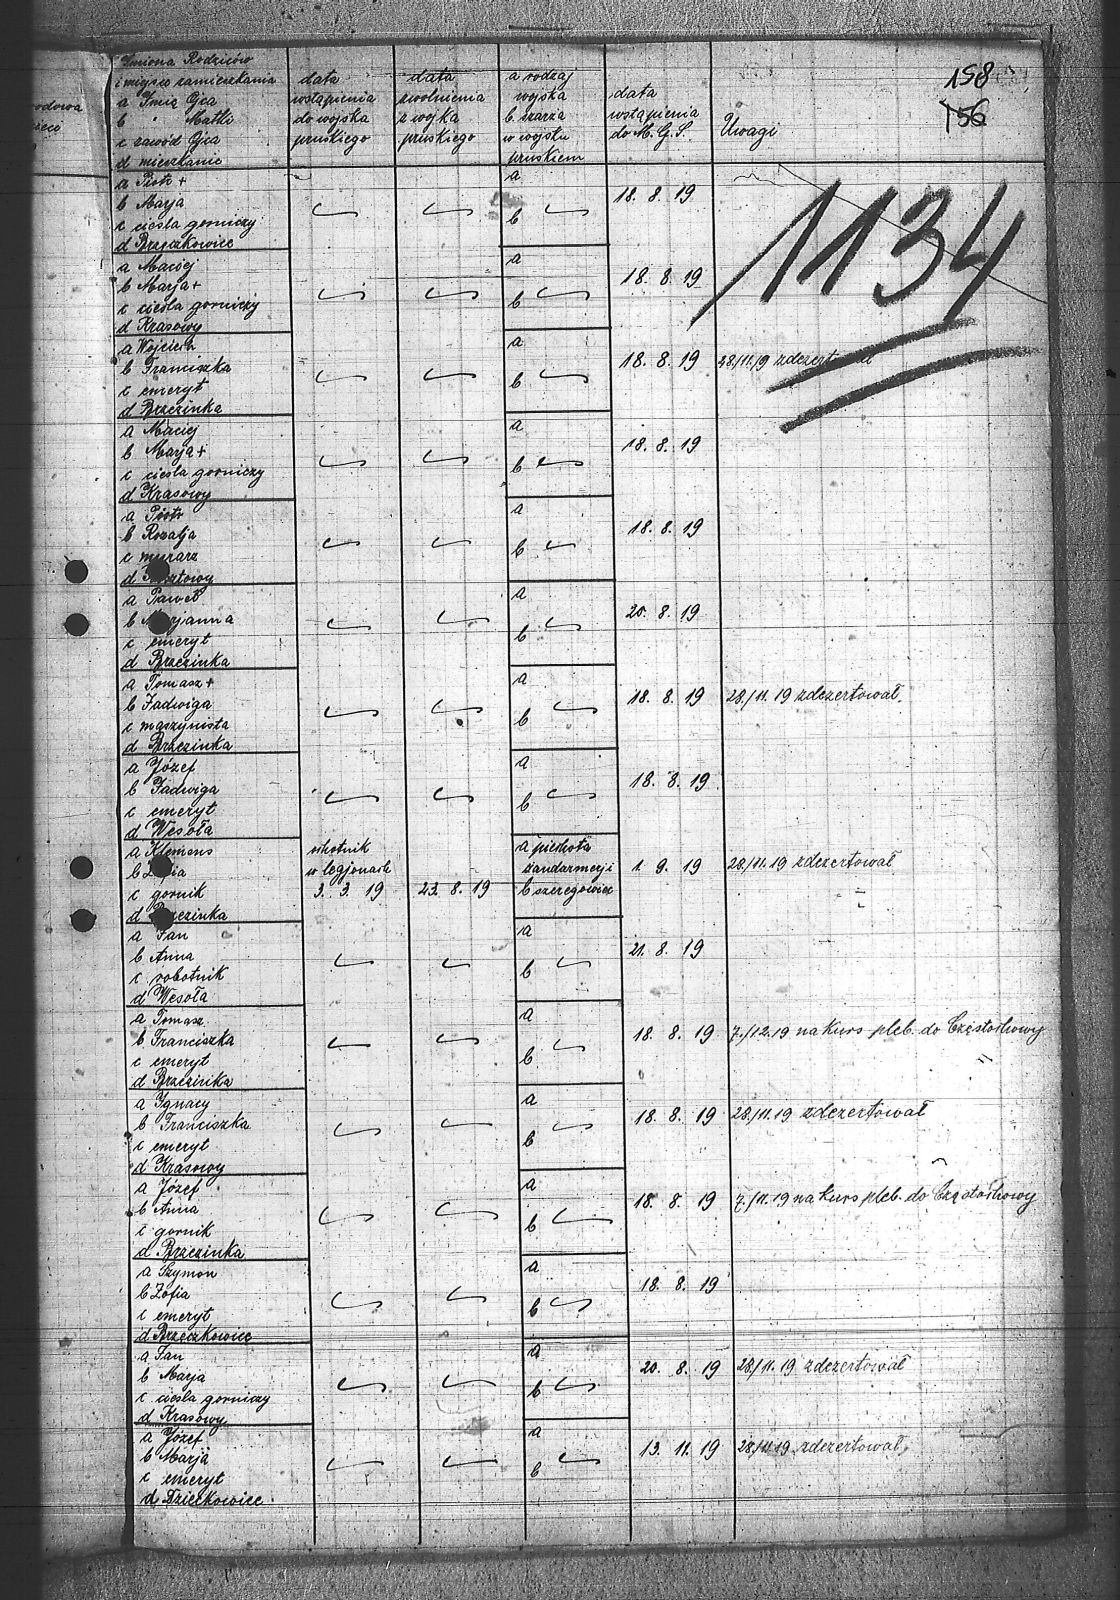 158
156
1134
rodowa
Imiona Rodziców
i miejsce zamieszkania
a Imię Ojca
b " Matki
c zawód Ojca
d mieszkanie
data
wstąpienia
do wojska
pruskiego
data
zwolnienia
z wojka
pruskiego
a rodzaj
wojska
b szarża
w wojsku
pruskiem
data
wstąpienia
do M. G. S.
Uwagi
a Piotr +
b Marja
c cieśla gorniczy
d Brzęczkowice
a
b
18. 8. 19
a Maciej
b Marja +
c cieśla gorniczy
d Krasowy
a
b
18. 8. 19
a Wojciech
b Franciszka
c emeryt
d Brzezinka
a
b
18. 8. 19
28/11.19 zdezertował
a Maciej
b Marja +
c cieśla gorniczy
d Krasowy
a
b
18. 8. 19
a Piotr
b Rozalja
c murarz
d
a
b
18. 8. 19
a Paweł
b Marjanna
c emeryt
d Brzezinka
a
b
20. 8. 19
a Tomasz +
b Jadwiga
c maszynista
d Brzezinka
a
b
18. 8. 19
28/11.19 zdezertował
a Józef
b Jadwiga
c emeryt
d Wesoła
a
b
18. 8. 19
a Klemens
b Zofia
c gornik
d Brzezinka
ochotnik
w legjonach
3. 3. 19
23. 8. 19
a piechota
żandarmerji
b szeregowiec
1. 9. 19
28/11.19 zdezertował
a Jan
b Anna
c robotnik
d Wesoła
a
b
21. 8. 19
a Tomasz
b Franciszka
c emeryt
d Brzezinka
a
b
18. 8. 19
7./12.19 na kurs pleb. do Częstochowy
a Ignacy
b Franciszka
c emeryt
d Krasowy
a
b
18. 8. 19
28/11.19 zdezertował
a Józef
b Anna
c gornik
d Brzezinka
a
b
18. 8. 19
7./11.19 na kurs pleb. do Częstochowy
a Szymon
b Zofia
c emeryt
d Brzęczkowice
a
b
18. 8. 19
a Jan
b Marja
c cieśla gorniczy
d Krasowy
a
b
20. 8. 19
28/11.19 zdezertował
a Józef
b Marja
c emeryt
d Dzieckowice
a
b
13. 11. 19
28/11.19 zdezertował